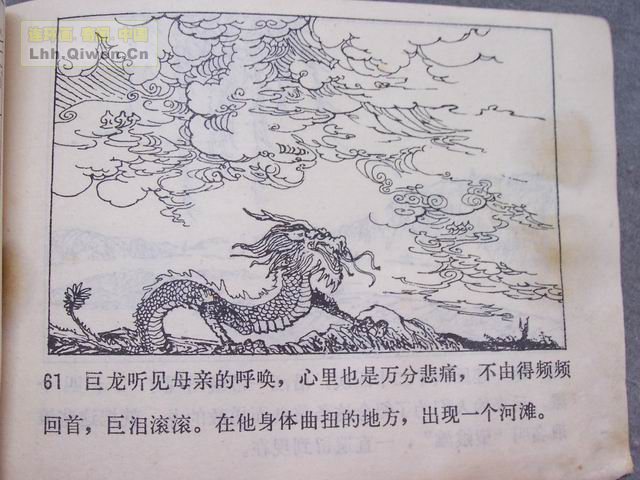 连环画.香烟.中国
Lhh.Qiwen.Cn
61 巨龙听见母亲的呼唤，心里也是万分悲痛，不由得频频
回首，巨泪滚滚。在他身体曲扭的地方，出现一个河滩。